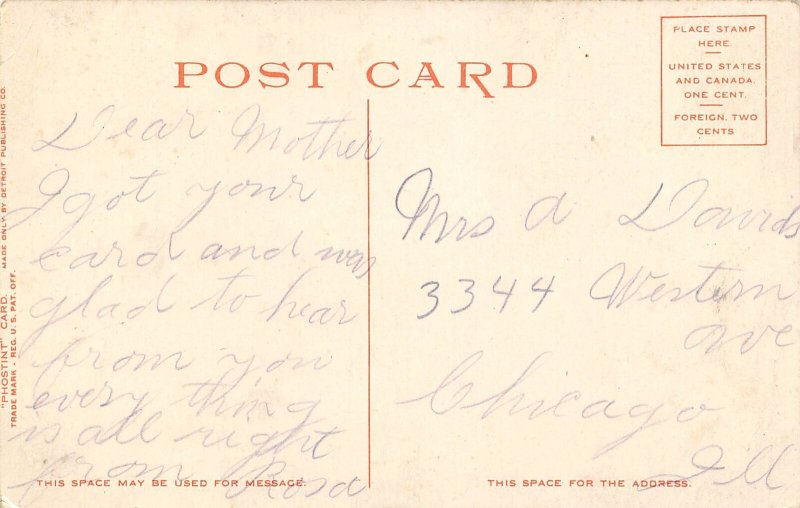 POST CARD
PLACE STAMP
HERE.
UNITED STATES
AND CANADA.
ONE CENT.
FOREIGN, TWO
CENTS
Dear Mother
I got your
card and was
glad to hear
from you
every thing
is all right
from Rosa
Mrs A Davids
3344 Western
ave
Chicago
Ill
THIS SPACE MAY BE USED FOR MESSAGE.
THIS SPACE FOR THE ADDRESS.
"PHOSTINT" CARD. MADE ONLY BY DETROIT PUBLISHING CO.
TRADE MARK - REG. U.S. PAT. OFF.